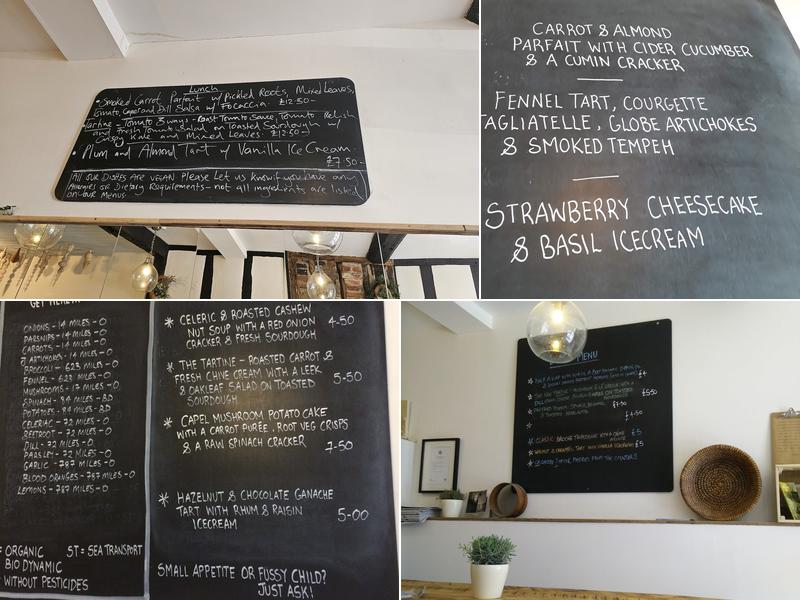 Lunch
• Smoked Carrot Parfait w/ Pickled Roots, Mixed Leaves,
Tomato, Caper and Dill Salsa w/ Focaccia £12.50-
Tartine - Tomato 3 ways - Roast Tomato Sauce, Tomato Relish
and Fresh Tomato Salad on Toasted Sourdough w/
Crispy Kale and Mixed Leaves £12.50-
• Plum and Almond Tart w/ Vanilla Ice Cream-
£7.50-
ALL OUR DISHES ARE VEGAN. Please Let us know if you have any
Allergies or Dietary Requirements - not all ingredients are listed
on our Menus
CARROT & ALMOND
PARFAIT WITH CIDER CUCUMBER
& A CUMIN CRACKER
FENNEL TART, COURGETTE
TAGLIATELLE, GLOBE ARTICHOKES
& SMOKED TEMPEH
STRAWBERRY CHEESECAKE
& BASIL ICECREAM
ONIONS - 14 MILES - O
PARSNIPS - 14 MILES - O
CARROTS - 14 MILES - O
ARTICHOKES - 14 MILES - O
BROCCOLI - 623 MILES - O
FENNEL - 623 MILES - O
MUSHROOMS - 17 MILES - O
SPINACH - 84 MILES - BD
POTATOES - 84 MILES - BD
CELERIAC - 72 MILES - O
BEETROOT - 72 MILES - O
DILL - 72 MILES - O
PARSLEY - 72 MILES - O
GARLIC - 787 MILES - O
BLOOD ORANGES - 787 MILES - O
LEMONS - 787 MILES - O
= ORGANIC ST = SEA TRANSPORT
BIO DYNAMIC
WITHOUT PESTICIDES
* CELERIC & ROASTED CASHEW
NUT SOUP WITH A RED ONION 4-50
CRACKER & FRESH SOURDOUGH
* THE TARTINE - ROASTED CARROT &
FRESH CHIVE CREAM WITH A LEEK
& OAKLEAF SALAD ON TOASTED 5-50
SOURDOUGH
* CAPEL MUSHROOM POTATO CAKE
WITH A CARROT PURÉE, ROOT VEG CRISPS
& A RAW SPINACH CRACKER 7-50
* HAZELNUT & CHOCOLATE GANACHE
TART WITH RHUM & RAISIN 5-00
ICECREAM
SMALL APPETITE OR FUSSY CHILD?
JUST ASK!
MENU
£4
£5.50
£4.50
£5
£5